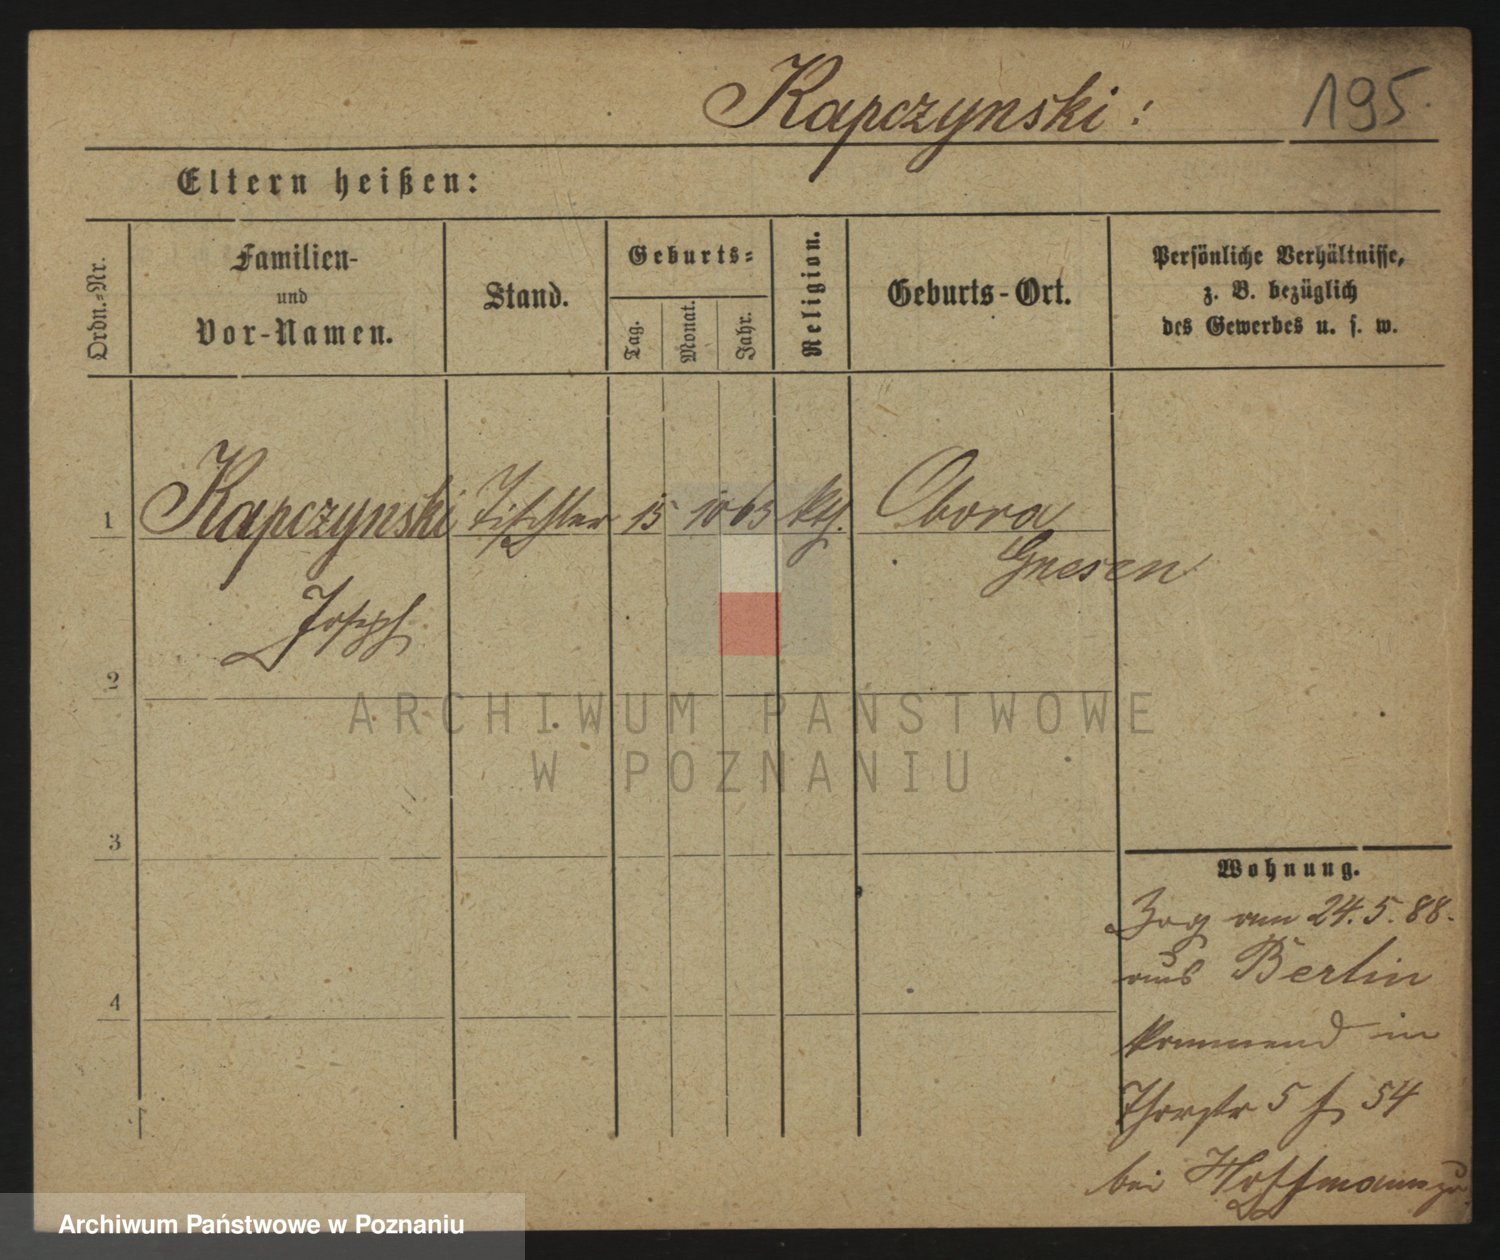 Kapczynski:
195.
Eltern heißen:
Ordn.-Nr.
Familien-
und
Vor-Namen.
Stand.
Geburts-
Tag.
Monat.
Jahr.
Religion.
Geburts-Ort.
Persönliche Verhältnisse,
z. B. bezüglich
des Gewerbes u. s. w.
1 Kapczynski Tischler 15 10 63 kth. Obora
Gnesen
Joseph
2
3
4
Wohnung.
Zog am 24.5.88.
aus Berlin
kommend in
Thorstr 5 54
bei Hoffmann zu
ARCHIWUM PAŃSTWOWE
W POZNANIU
Archiwum Państwowe w Poznaniu